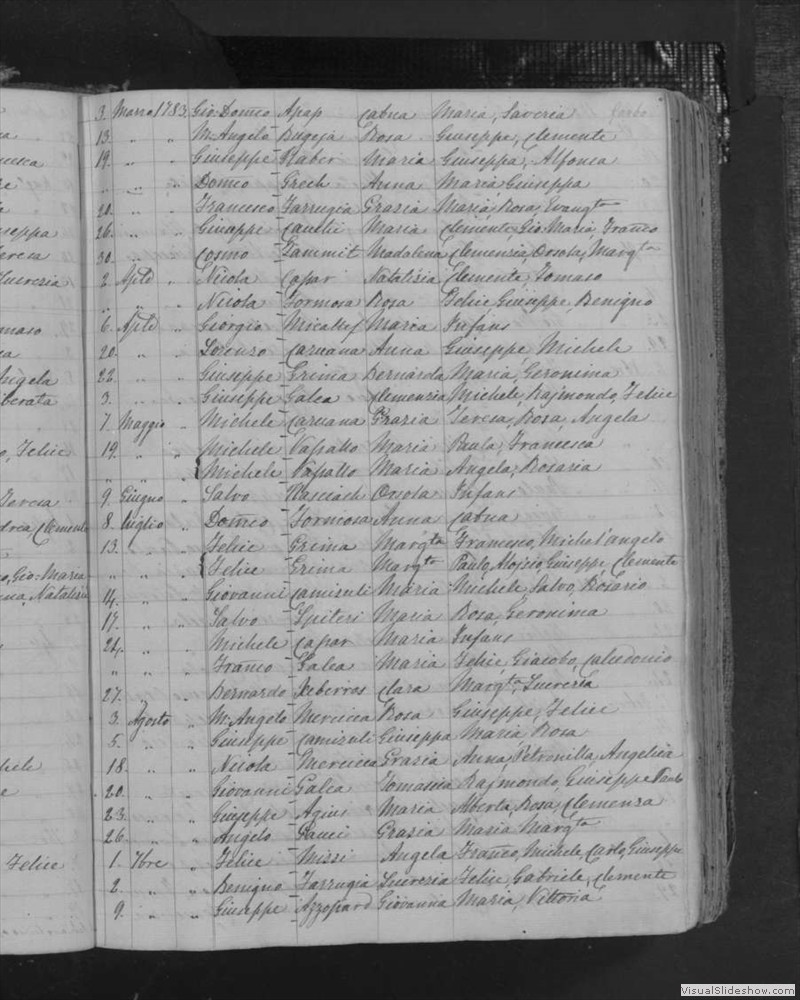 3. Marzo 1783 Gio. Domco Apap Catna Maria, Saveria
13. " " M. Angelo Bugeja Rosa Giuseppe, Clemente
19. " " Giuseppe Maria Giuseppa, Alfonsa
" " " Domco Grech Anna Maria Giuseppa
20. " " Francesco Farrugia Grazia Maria, Rosa, Evangta
26. " " Giuseppe Maria Clemente, Gio. Maria, Franco
30. " " Cosmo Tammit Madalena Clemenzia, Orsola, Margta
2. Aple " Nicola Natalizia Clemente, Tomaso
" " " Nicola Formosa Rosa Felice, Giuseppe, Benigno
6. Aple " Giorgio Micallef Maria Infans
20. " " Lorenzo Caruana Anna Giuseppe, Michele
22. " " Giuseppe Grima Bernarda Maria, Geronima
3. " " Giuseppe Galea Clemenzia Michele, Rajmondo, Felice
7. Maggio " Michele Caruana Grazia Teresa, Rosa, Angela
19. " " Michele Vassallo Maria Paula, Francesca
" " Michele Vassallo Maria Angela, Rosaria
9. Giugno " Salvo Orsola Infans
8. Luglio " Domco Formosa Anna Catna
13. " " Felice Grima Margta Francesco, Michel'angelo
" " " Felice Grima Margta Paulo, Aloisio, Giuseppe, Clemente
14. " " Giovanni Camizuli Maria Michele, Salvo, Rosario
17. " " Salvo Spiteri Maria Rosa, Geronima
24. " Michele Maria Infans
" " Franco Galea Maria Felice, Giacobo, Calcedonio
27. " Bernardo Clara Margta, Lucrezia
3. Agosto " M. Angelo Mercieca Rosa Giuseppe, Felice
5. " " Giuseppe Camizuli Giuseppa Maria Rosa
18. " " Nicola Mercieca Grazia Anna, Petronilla, Angelica
20. " " Giovanni Galea Tomassia Rajmondo, Giuseppe Paulo
23. " " Giuseppe Agius Maria Rosa, Clemenza
26. " " Angelo Gauci Grazia Maria Margta
1. 7bre " Felice Missi Angela Franco, Michele, Carlo, Giuseppe
2. " " Benigno Farrugia Lucrezia Felice, Gabriele, Clemente
9. " " Giuseppe Azzopard Giovanna Maria, Vittoria
VisualSlideshow.com